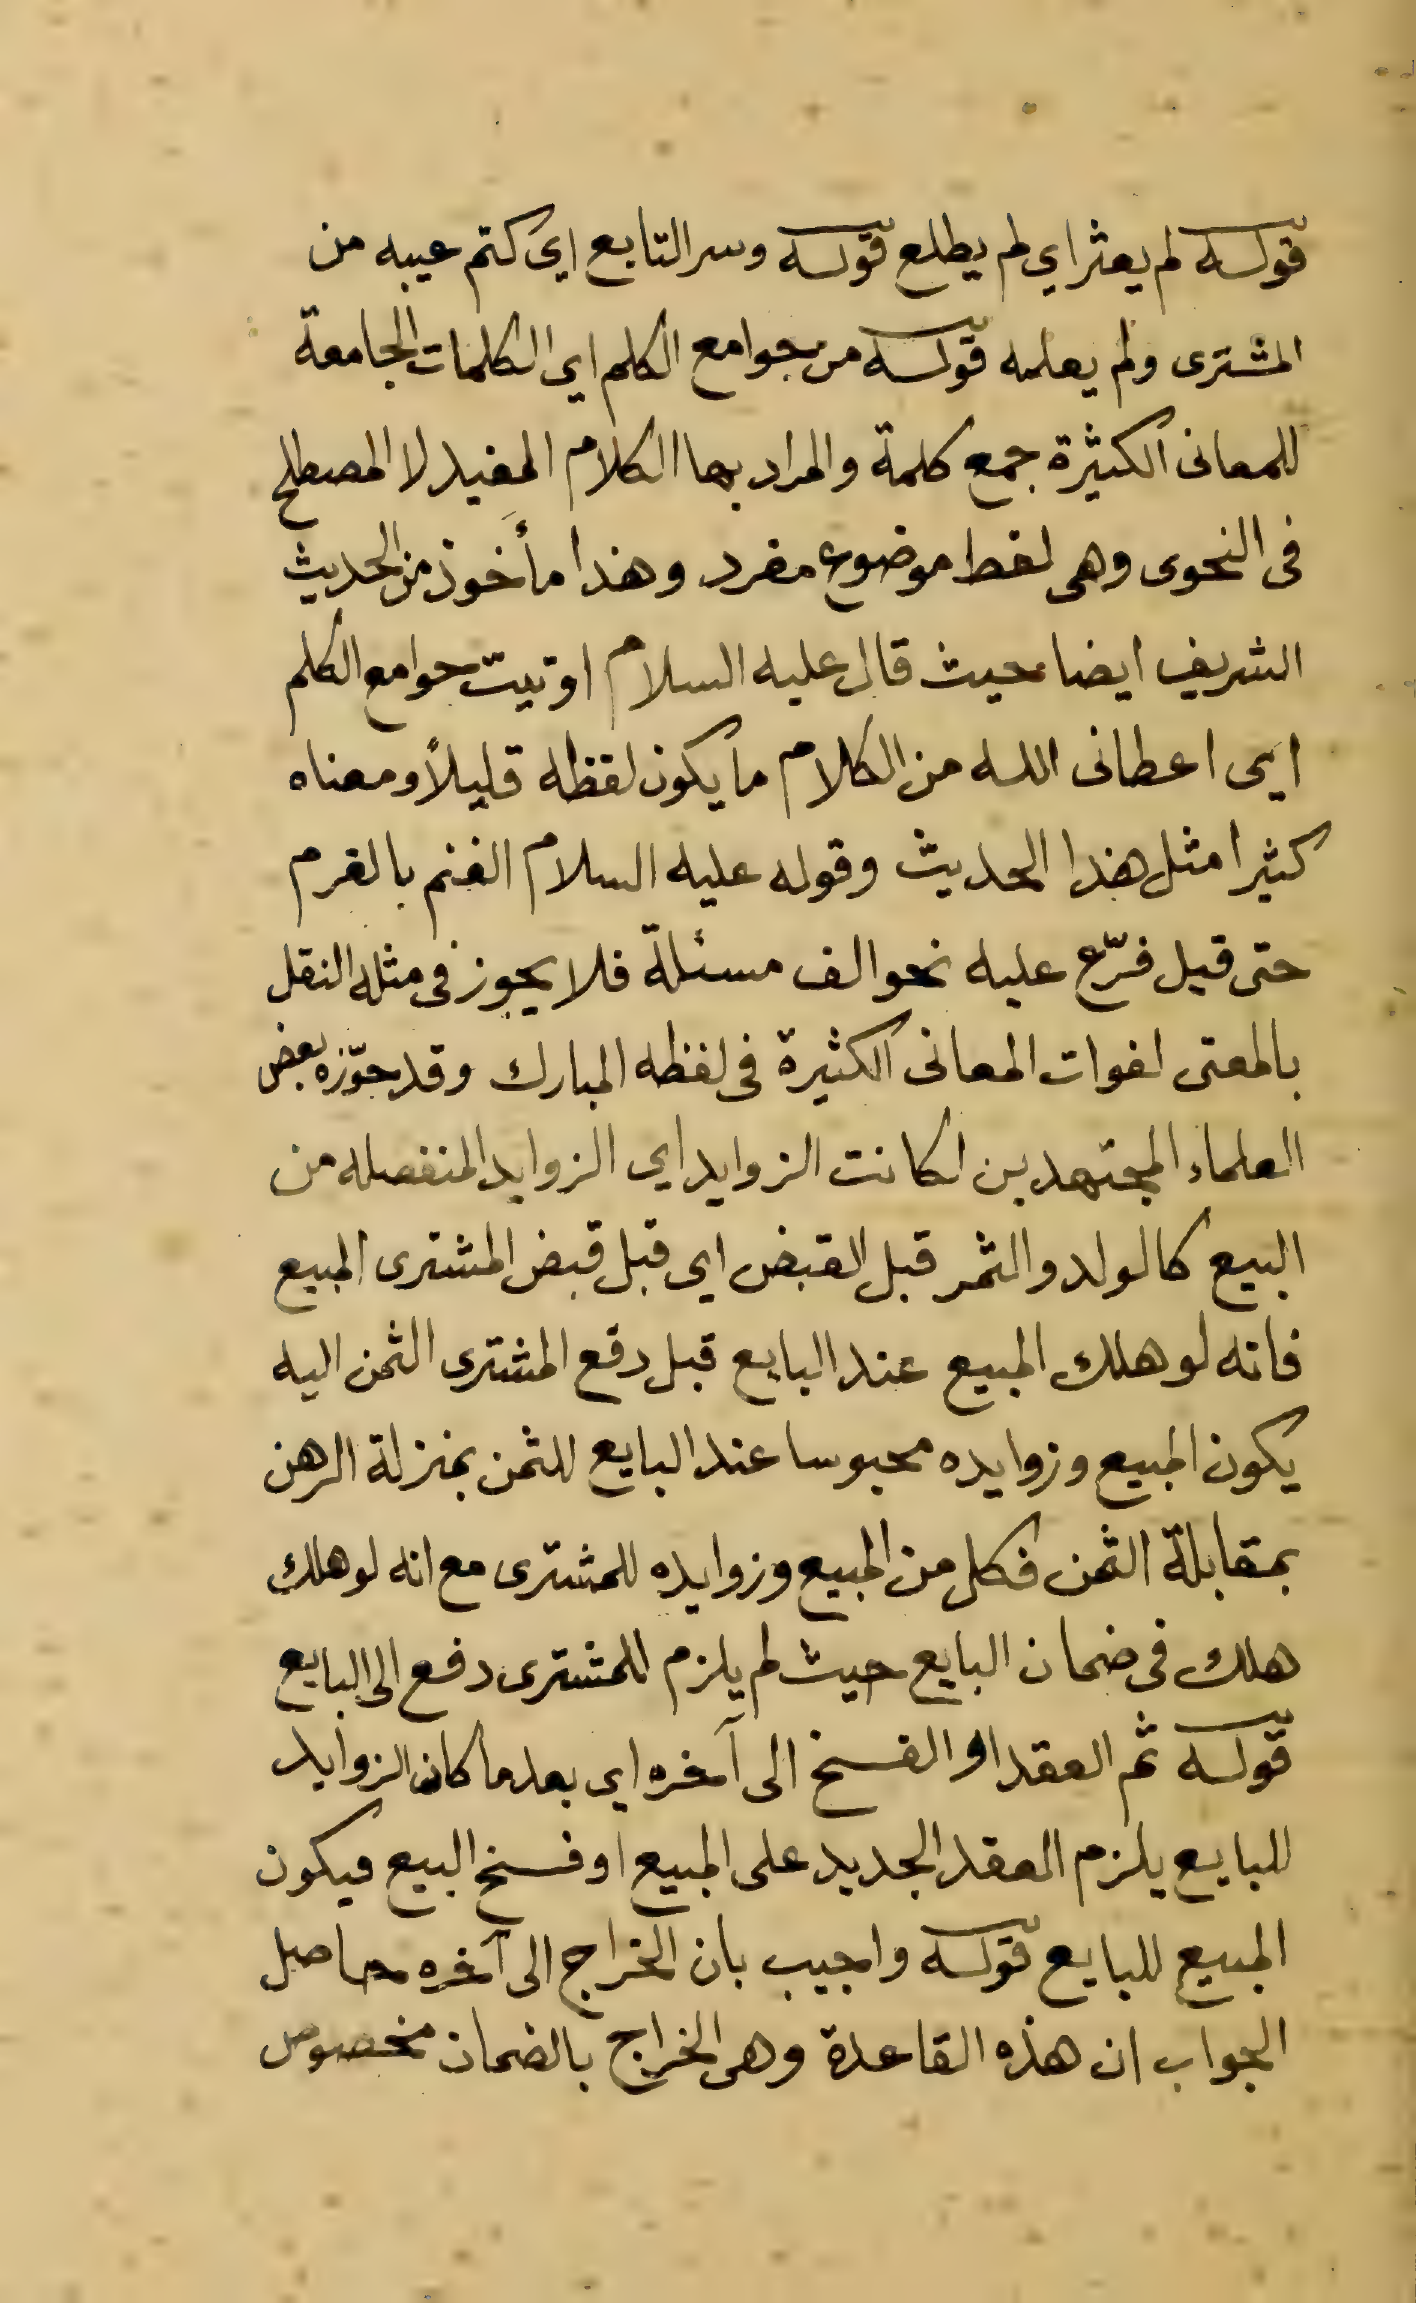 قوله لم يعثر اي لم يطلع قوله وسر التابع اي كتم عيبه من
المشترى ولم يعلمه قوله من جوامع الكلم اي الكلمات الجامعة
للمعانى الكثيرة جمع كلمة والمراد بها الكلام المفيد لا المصطلح
فى النحوى وهى لفط موضوع مفرد وهذا مأخوذ من الحديث
الشريف ايضا حيث قال عليه السلام اوتيت جوامع الكلم
اي اعطانى الله من الكلام ما يكون لفظه قليلاً ومعناه
كثيرا مثل هذا الحديث وقوله عليه السلام الغنم بالغرم
حتى قيل فرّع عليه نحو الف مسئلة فلا يجوز فى مثله النقل
بالمعنى لفوات المعانى الكثيرة فى لفظه المبارك وقد جوّزه بعض
العلماء المجتهدين لكانت الزوايد اي الزوايد المنفصله من
البيع كالولد والثمر قبل القبض اي قبل قبض المشترى المبيع
فانه لو هلك المبيع عند البايع قبل دفع المشترى الثمن اليه
يكون المبيع وزوايده محبوسا عند البايع للثمن بمنزلة الرهن
بمقابلة الثمن فكل من المبيع وزوايده للمشترى مع انه لو هلك
هلك فى ضمان البايع حيث لم يلزم للمشترى دفع الى البايع
قوله ثم العقد او الفسخ الى آخره اي بعد ما كان الزوايد
للبايع يلزم العقد الجديد على المبيع او فسخ البيع فيكون
المبيع للبايع قوله واجيب بان الخراج الى آخره حاصل
الجواب ان هذه القاعدة وهى الخراج بالضمان مخصوص